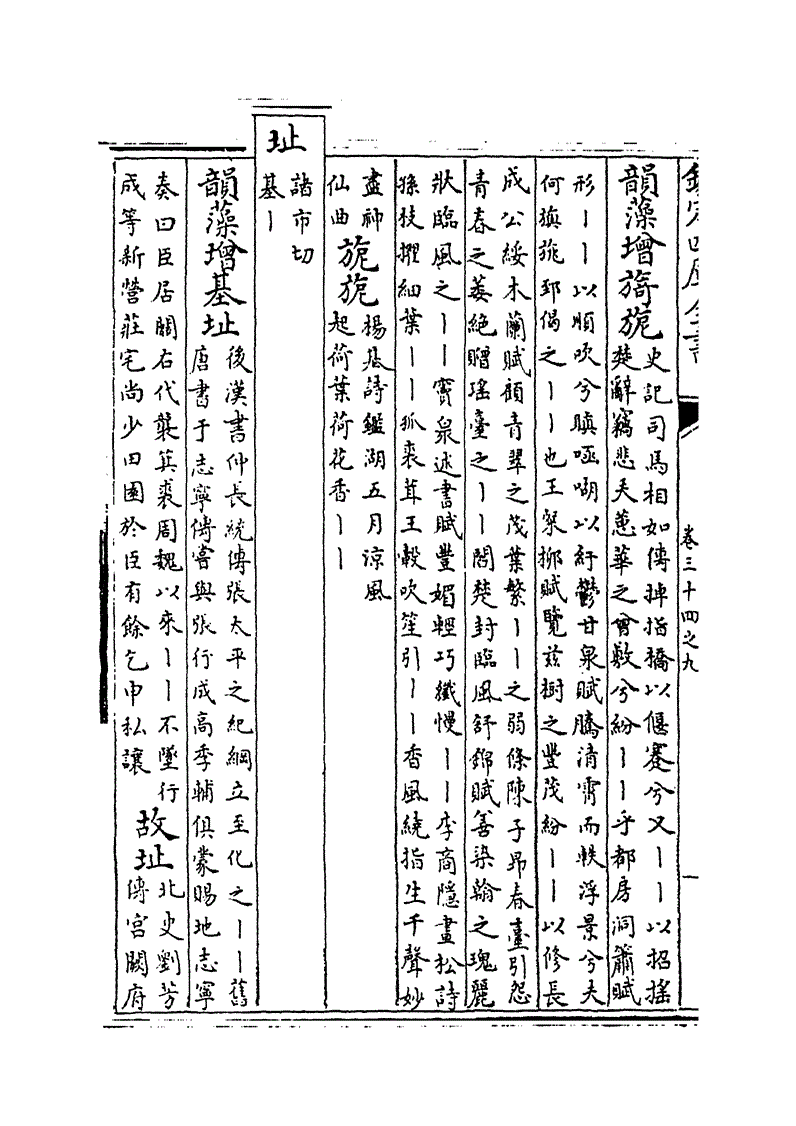 欽定四庫全書
卷三十四之九
一
韻藻增旖旎
史記司馬相如傳掉指橋以偃蹇兮又丨丨以招搖
楚辭竊悲夫蕙華之曾敷兮紛丨丨乎都房洞簫賦
形丨丨以順吹兮瞋㗅以紆鬱甘泉賦騰清霄而軼浮景兮夫
何旟旐郅偈之丨丨也王粲柳賦覽茲樹之豐茂紛丨丨以修長
成公綏木蘭賦顧青翠之茂葉繁丨丨之弱條陳子昂春臺引怨
青春之萎絶贈瑶臺之丨丨閻楚封臨風舒錦賦善染翰之瑰麗
狀臨風之丨丨竇泉述書賦豐媚輕巧纖慢丨丨李商隱畫松詩
孫枝擢細葉丨丨狐裘茸王轂吹笙引丨丨香風繞指生千聲妙
盡神
仙曲
旎旎
楊基詩鑑湖五月涼風
起荷葉荷花香丨丨
址
諸市切
基丨
韻藻增基址
後漢書仲長統傳張太平之紀綱立至化之丨丨舊
唐書于志寧傳嘗與張行成高季輔俱蒙賜地志寧
奏曰臣居關右代襲箕裘周魏以來丨丨不墜行
成等新營莊宅尚少田園於臣有餘乞申私讓
故址
北史劉芳
傳宫闕府